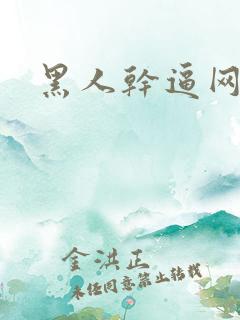 黑人幹逼网
金洪正
未经同意禁止转载